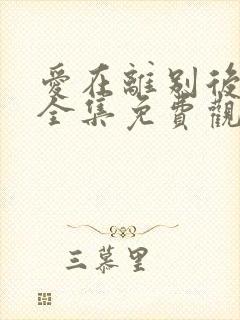 愛在離別後
全集免費觀
三慕里